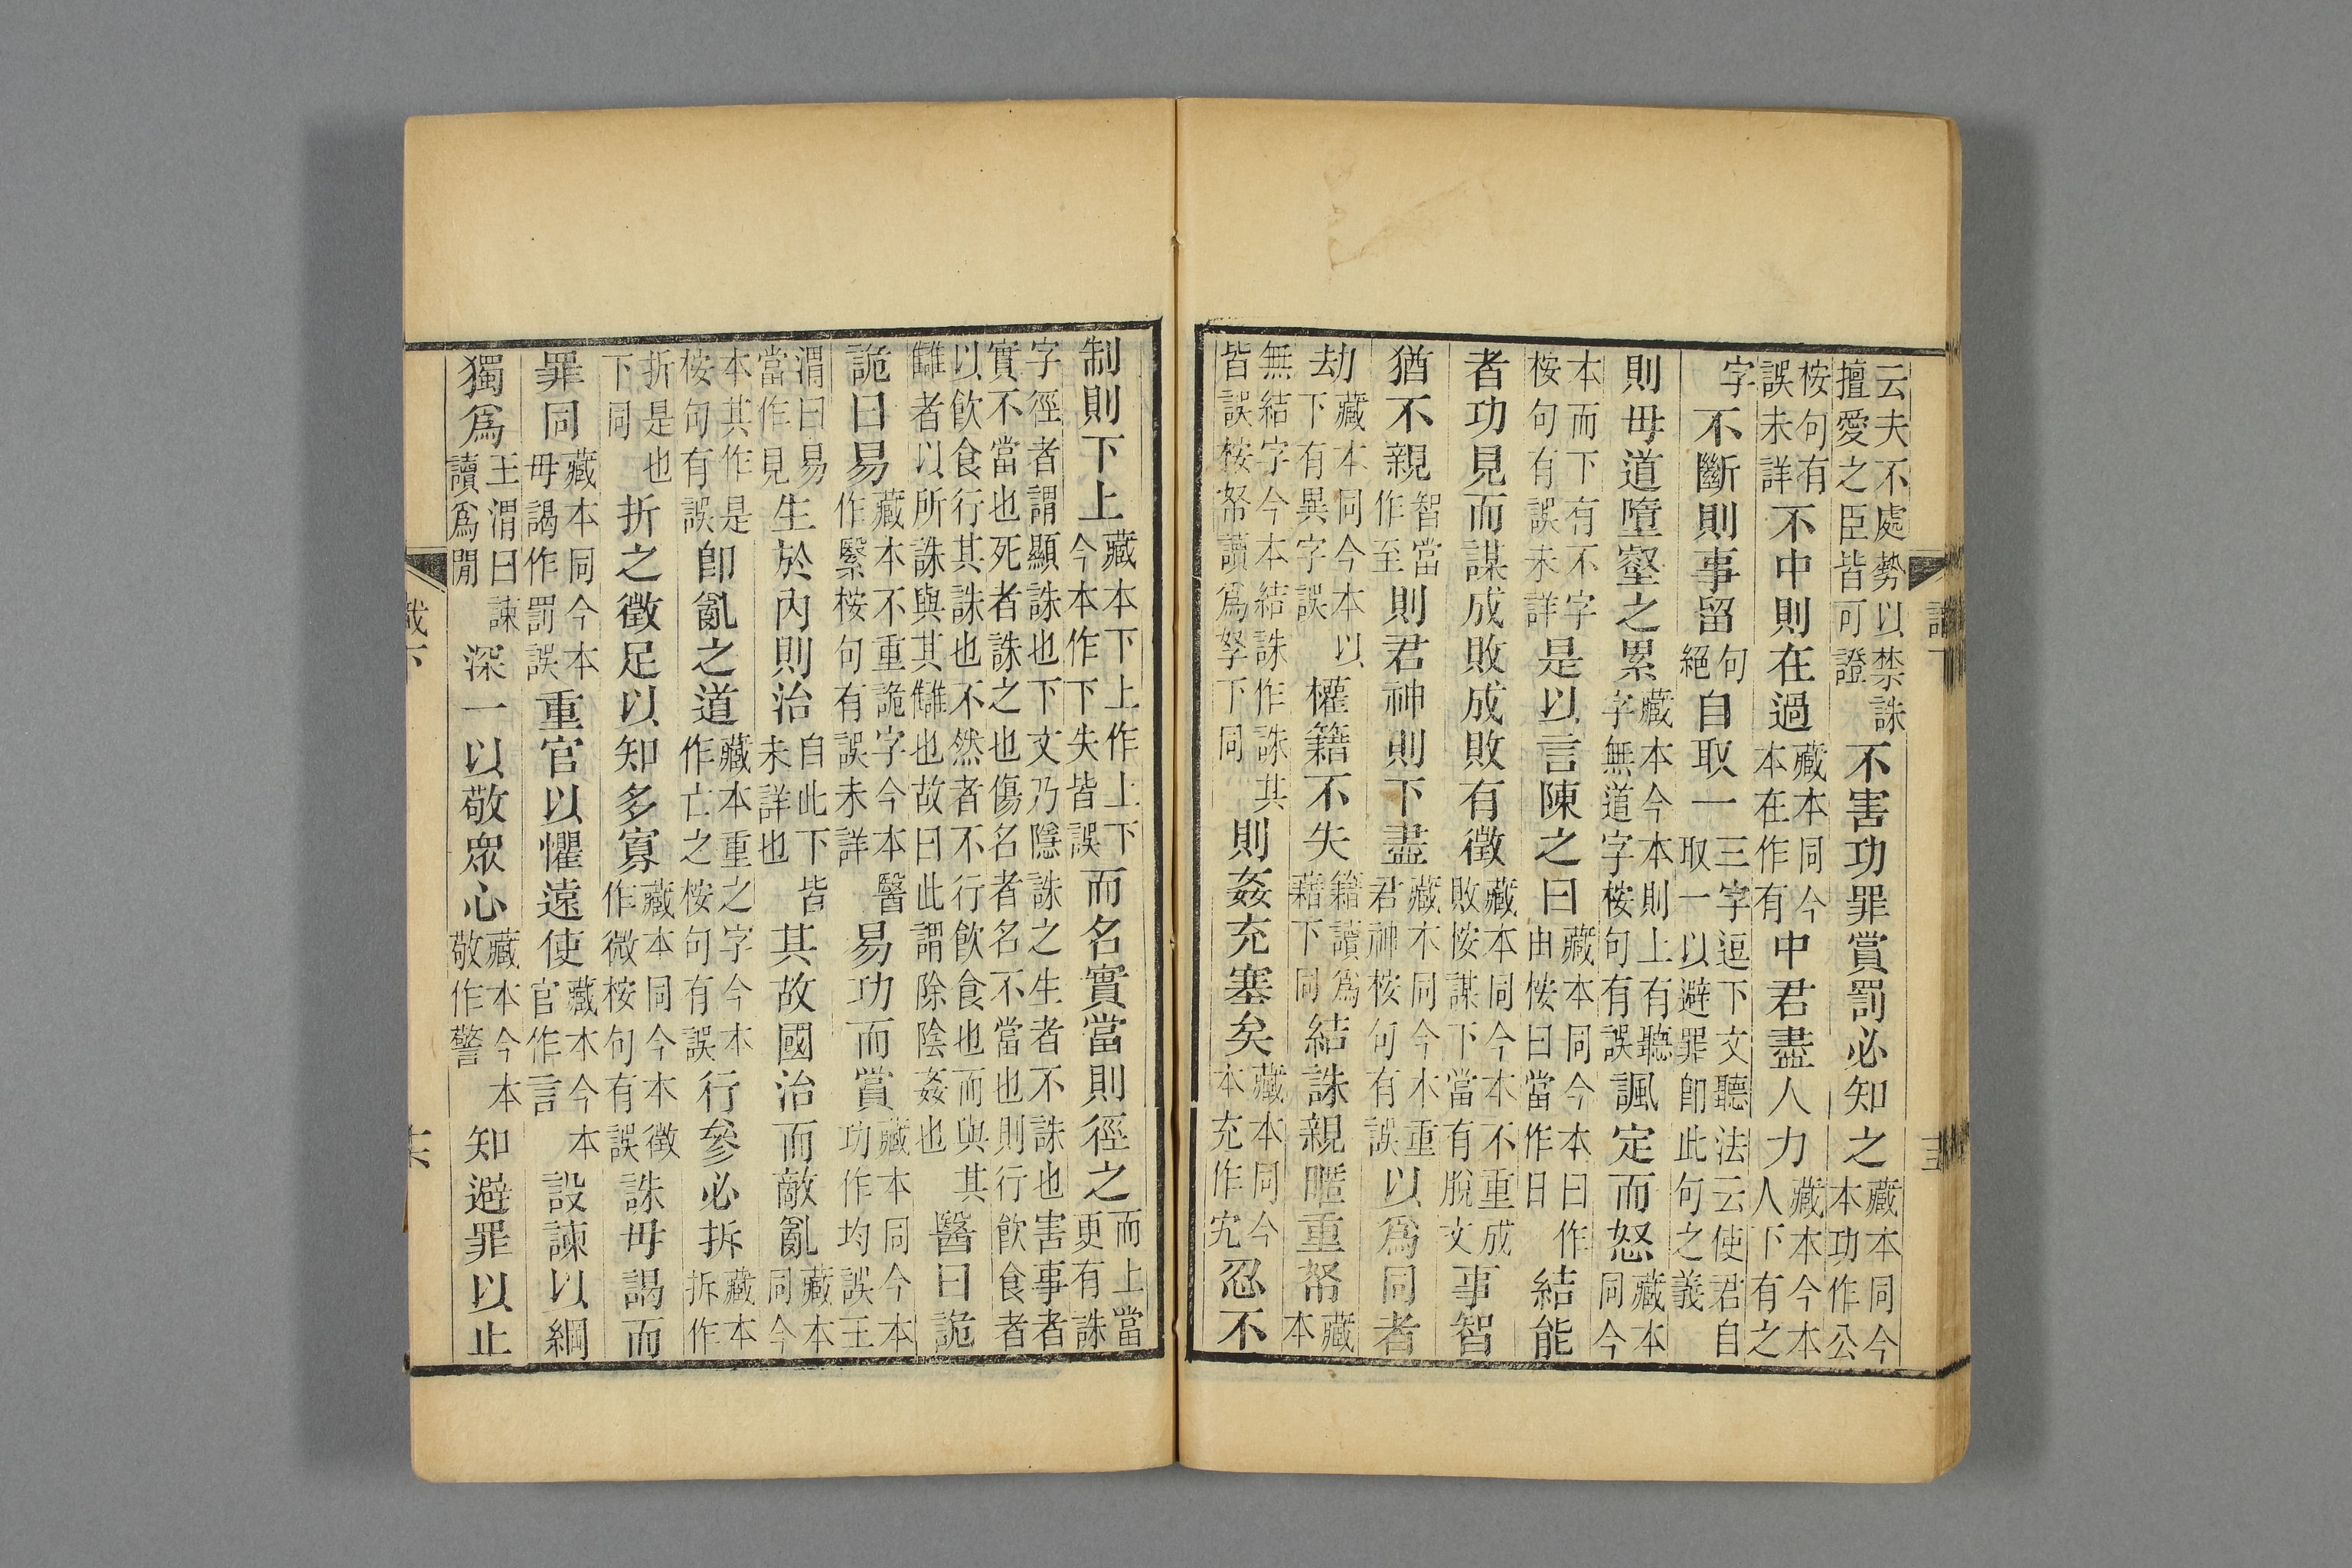 云夫不處勢以禁誅擅愛之臣皆可證不害功罪賞罰必知之藏本同今本功作公
桉句有誤未詳不中則在過藏本同今本在作有中君盡人力藏本今本人下有之
字不斷則事留句絕自取一三字逗下文聽法云使君自取一以避罪卽此句之義
則毋道墮壑之累藏本今本則上有聽字無道字桉句有誤諷定而怒藏本同今
本而下有不字桉句有誤未詳是以言陳之曰藏本同今本曰作由桉曰當作日結能
者功見而謀成敗成敗有徵藏本同今本不重成敗桉謀下當有脫文事智
猶不親智當作至則君神則下盡藏本同今本重君神桉句有誤以爲同者
劫藏本同今本以下有異字誤權籍不失籍讀爲藉下同結誅親暱重帑藏本
無結字今本結誅作誅其皆誤桉帑讀爲孥下同則姦充塞矣藏本同今本充作宄忍不
制則下上藏本下上作上下今本作下失皆誤而名實當則徑之而上當更有誅
字徑者謂顯誅也下文乃隱誅之生者不誅也害事者
實不當也死者誅之也傷名者名不當也則行飲食者
以飲食行其誅也不然者不行飲食也而與其讎者以所誅與其讎也故曰此謂除陰姦也醫曰詭
詭曰易藏本不重詭字今本醫作繄桉句有誤未詳易功而賞藏本同今本功作均誤王
渭曰易當作見生於內則治自此下皆未詳也其故國治而敵亂藏本同今
本其作是桉句有誤卽亂之道藏本重之字今本作亡之桉句有誤行參必拆藏本拆作
折是也下同折之徵足以知多寡藏本同今本徵作微桉句有誤誅毋謁而
罪同藏本同今本毋謁作罰誤重官以懼遠使藏本今本官作言設諫以綱
獨爲王渭曰諫讀爲閒深一以敬眾心藏本今本敬作警知避罪以止